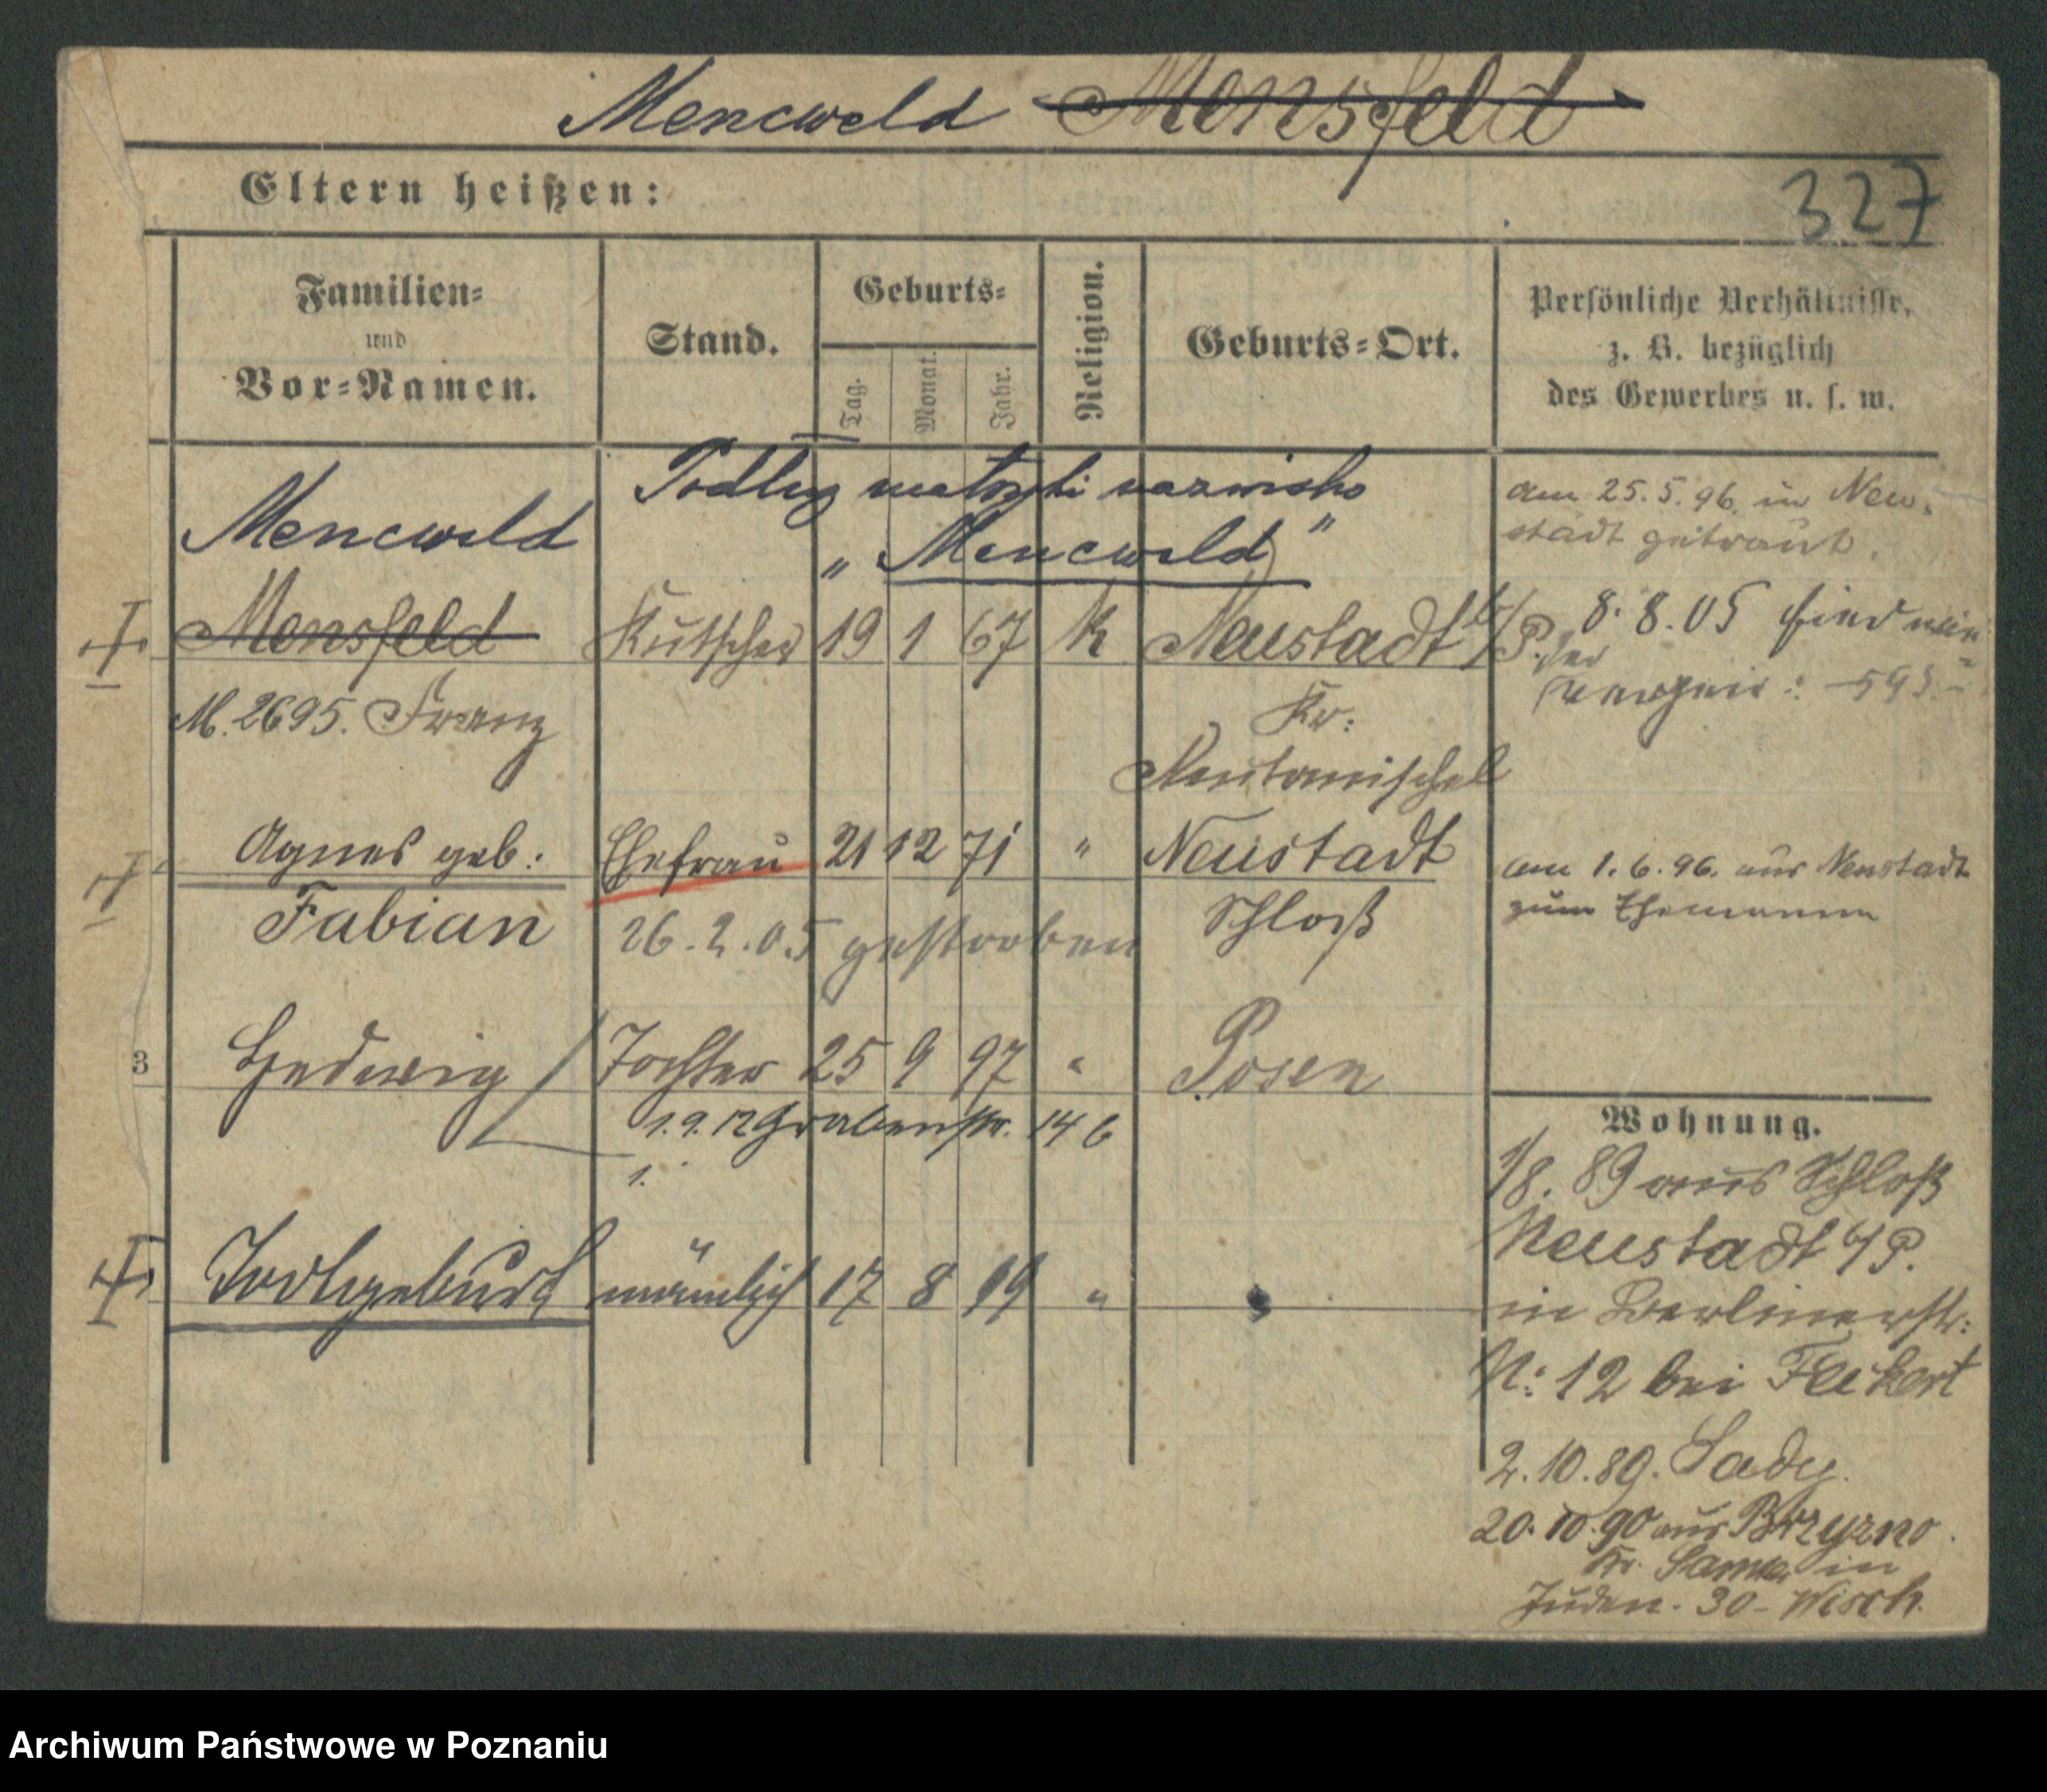 Mencweld Mensfeld
Eltern heißen:
327
Familien=
und
Vor=Namen.
Stand.
Geburts=
Tag.
Monat.
Jahr.
Religion.
Geburts=Ort.
Persönliche Verhältnisse,
z. B. bezüglich
des Gewerbes u. s. w.
Podług metryki nazwisko
Mencweld
„ Mencweld "
am 25.5.96. in Neu-
stadt getraut.
Mensfeld Kutscher 19 1 67 K Neustadt b/P.
8. 8. 05
M. 2695. Franz
Kr:
Neutomischel
Agnes geb: Ehefrau 21 12 71 " Neustadt
Fabian
Schloß
26. 2. 05 gestorben
am 1. 6. 96. aus Neustadt
zum Ehemann
3 Hedwig Tochter 25 9 97 " Posen
1. 9. 12 Grabenstr. 14 b
1.
Todtgeburt männlich 17 8 99 "
Wohnung.
1/8. 89 aus Schloß
Neustadt b/P.
in Berlinerstr:
N: 12 bei Fleckert
2. 10. 89. Sady.
20. 10. 90 aus Brzezno
Kr. Samter in
Juden. 30 - Wisch.
Archiwum Państwowe w Poznaniu